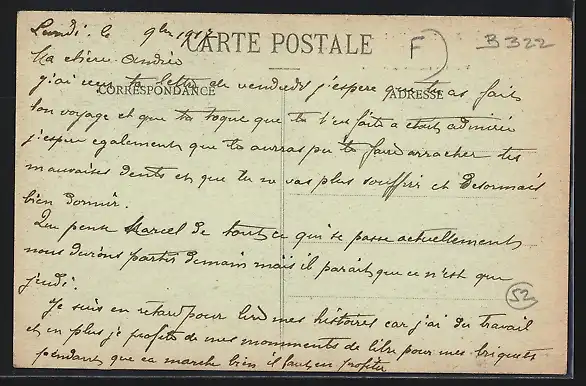 Lundi. le 9bre 191
CARTE POSTALE
F
B 322
Ma chère Andrée
j'ai reçu ta lettre de vendredi j'espère que tu as fait
CORRESPONDANCE
ADRESSE
bon voyage et que ta toque que tu t'es faite a était admirée
j'espère egalement que tu auras pu te faire arracher tes
mauvaises dents et que tu ne vas plus souffrir et desormais
bien dormir.
Que pense Marcel de tout ce qui se passe actuellement
nous devions partir demain mais il parait que ce n'est que
jeudi.
52
Je suis en retard pour lire mes histoires car j'ai du travail
et en plus je profite de mes momments de libre pour mes briquets
pendant que ca marche bien il faut en profiter